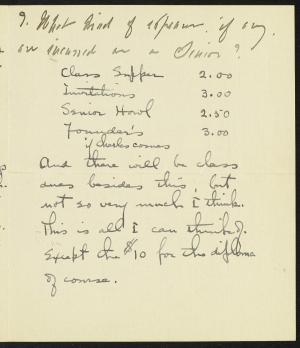 9. What kind of expenses, if any,
are incurred as a Senior?
Class Supper 2.00
Invitations 3.00
Senior Howl 2.50
Founder's 3.00
if Charles comes
And there will be class
dues besides this, but
not so very much I think.
This is all I can think of.
Except the $10 for the diploma
of course.